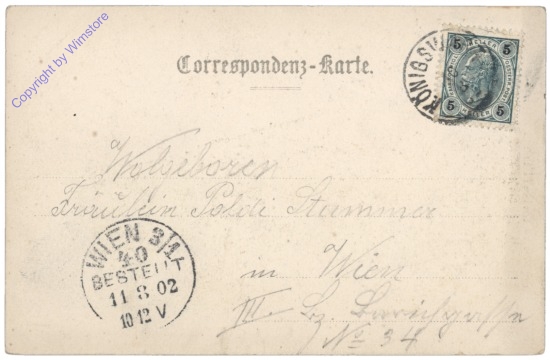 Copyright by Wimstore
Correspondenz-Karte.
5 HELLER 5
KÖNIGSW
5 5
Fräulein Poldi Stummer
WIEN 3/1
40
BESTELLT
11 3 02
10-12 V
in Wien
III. Bz.
No 34